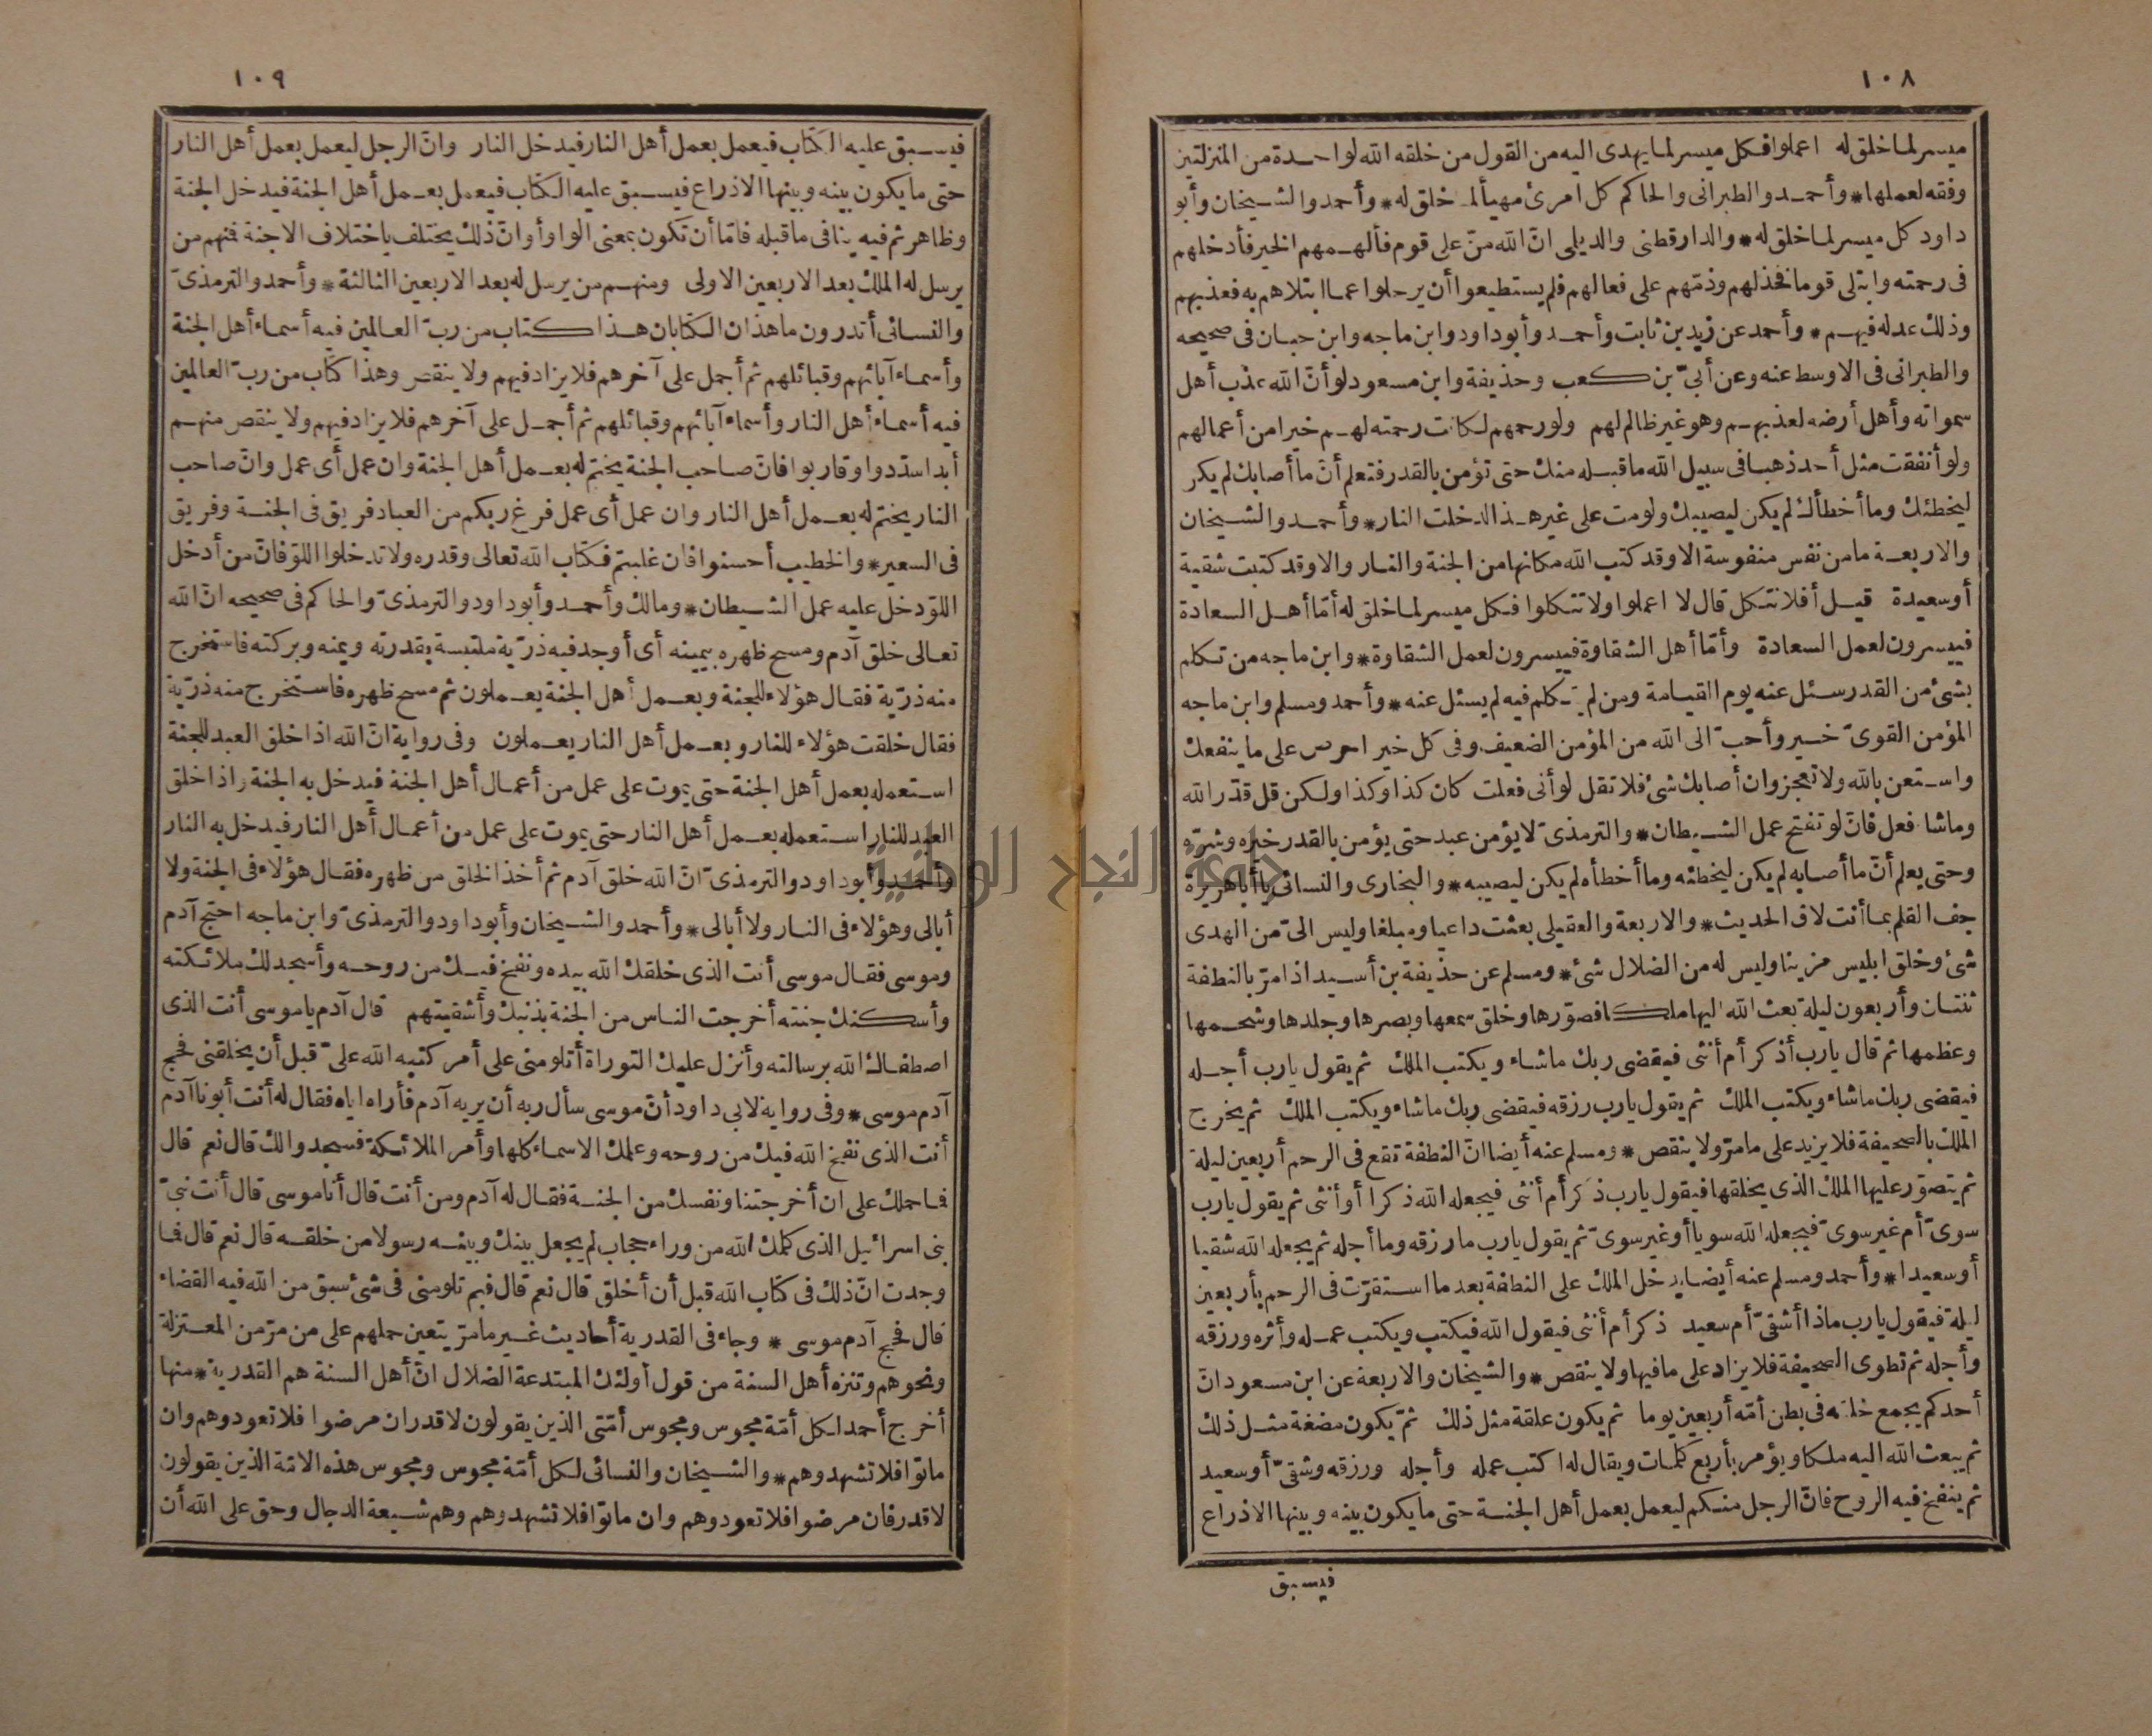 ١٠٨
ميسر لما خلق له اعملوا فكل ميسر لما يهدى اليه من القول من خلقه الله لواحدة من المنزلتين
وفقه لعملها* وأحمد والطبرانى والحاكم كل امرئ مهيأ لما خلق له* وأحمد والشيخان وأبو
داود كل ميسر لما خلق له* والدارقطنى والديلى انّ الله منّ على قوم فألهمهم الخير فأدخلهم
فى رحمته وابتلى قوما فخذلهم وذمّهم على فعالهم فلم يستطيعوا أن يرحلوا عما ابتلاهم به فعذبهم
وذلك عدله فيهم* وأحمد عن زيد بن ثابت وأحمد وأبو داود وابن ماجه وابن حبان فى صحيحه
والطبرانى فى الاوسط عنه وعن أبىّ بن كعب وحذيفة وابن مسعود لو أنّ الله عذب أهل
سمواته وأهل أرضه لعذبهم وهو غير ظالم لهم ولو رحمهم لكانت رحمته لهم خيرا من أعمالهم
ولو أنفقت مثل أحد ذهبا فى سبيل الله ما قبله منك حتى تؤمن بالقدر فتعلم أنّ ما أصابك لم يكن
ليخطئك وما أخطأك لم يكن ليصيبك ولو مت على غير هذا لدخلت النار* وأحمد والشيخان
والاربعة ما من نفس منفوسة الا وقد كتب الله مكانها من الجنة والنار والا وقد كتبت شقية
أو سعيدة قيل أفلا نتكل قال لا اعملوا ولا تتكلوا فكل ميسر لما خلق له أمّا أهل السعادة
فييسرون لعمل السعادة وأمّا أهل الشقاوة فييسرون لعمل الشقاوة* وابن ماجه من تكلم
بشئ من القدر سئل عنه يوم القيامة ومن لم يتكلم فيه لم يسئل عنه* وأحمد ومسلم وابن ماجه
المؤمن القوىّ خير وأحبّ الى الله من المؤمن الضعيف وفى كل خير احرص على ما ينفعك
واستعن بالله ولا تعجز وان أصابك شئ فلا تقل لو أنى فعلت كان كذا وكذا ولكن قل قدّر الله
وما شاء فعل فانّ لو تفتح عمل الشيطان* والترمذىّ لا يؤمن عبد حتى يؤمن بالقدر خيره وشرّه
وحتى يعلم أنّ ما أصابه لم يكن ليخطئه وما أخطأه لم يكن ليصيبه* والبخارى والنسائى يا أبا هريرة
جف القلم بما أنت لاق الحديث* والاربعة والعقيلى بعثت داعيا ومبلغا وليس الىّ من الهدى
شئ وخلق ابليس مزينا وليس له من الضلال شئ* ومسلم عن حذيفة بن أسيد اذا مرّ بالنطفة
ثنتان وأربعون ليلة بعث الله اليها ملكا فصوّرها وخلق سمعها وبصرها وجلدها وشحمها
وعظمها ثم قال يارب أذكر أم أنثى فيقضى ربك ما شاء ويكتب الملك ثم يقول يارب أجله
فيقضى ربك ما شاء ويكتب الملك ثم يقول يارب رزقه فيقضى ربك ما شاء ويكتب الملك ثم يخرج
الملك بالصحيفة فلا يزيد على ما مرّ ولا ينقص* ومسلم عنه أيضا انّ النطفة تقع فى الرحم أربعين ليلة
ثم يتصوّر عليها الملك الذى يخلقها فيقول يارب ذكر أم أنثى فيجعله الله ذكرا أو أنثى ثم يقول يارب
سوىّ أم غير سوىّ فيجعله الله سويا أو غير سوىّ ثم يقول يارب ما رزقه وما أجله ثم يجعله الله شقيا
أو سعيدا* وأحمد ومسلم عنه أيضا يدخل الملك على النطفة بعد ما استقرّت فى الرحم بأربعين
ليلة فيقول يارب ماذا أشقىّ أم سعيد ذكر أم أنثى فيقول الله فيكتب ويكتب عمله وأثره ورزقه
وأجله ثم تطوى الصحيفة فلا يزاد على ما فيها ولا ينقص* والشيخان والاربعة عن ابن مسعود انّ
أحدكم يجمع خلقه فى بطن أمّه أربعين يوما ثم يكون علقة مثل ذلك ثمّ يكون مضغة مثل ذلك
ثم يبعث الله اليه ملكا ويؤمر بأربع كلمات ويقال له اكتب عمله وأجله ورزقه وشقىّ أو سعيد
ثم ينفخ فيه الروح فانّ الرجل منكم ليعمل بعمل أهل الجنة حتى ما يكون بينه وبينها الا ذراع
فيسبق
١٠٩
فيسبق عليه الكتاب فيعمل بعمل أهل النار فيدخل النار وانّ الرجل ليعمل بعمل أهل النار
حتى ما يكون بينه وبينها الا ذراع فيسبق عليه الكتاب فيعمل بعمل أهل الجنة فيدخل الجنة
وظاهر ثم فيه ينافى ما قبله فامّا أن تكون بمعنى الواو أو أنّ ذلك يختلف باختلاف الاجنة فمنهم من
يرسل له الملك بعد الاربعين الاولى ومنهم من يرسل له بعد الاربعين الثالثة* وأحمد والترمذىّ
والنسائى أتدرون ما هذان الكتابان هذا كتاب من ربّ العالمين فيه أسماء أهل الجنة
وأسماء آبائهم وقبائلهم ثم أجمل على آخرهم فلا يزاد فيهم ولا ينقص وهذا كتاب من ربّ العالمين
فيه أسماء أهل النار وأسماء آبائهم وقبائلهم ثم أجمل على آخرهم فلا يزاد فيهم ولا ينقص منهم
أبدا سدّدوا وقاربوا فانّ صاحب الجنة يختم له بعمل أهل الجنة وان عمل أى عمل وانّ صاحب
النار يختم له بعمل أهل النار وان عمل أى عمل فرغ ربكم من العباد فريق فى الجنة وفريق
فى السعير* والخطيب أحسنوا فان غلبتم فكتاب الله تعالى وقدره ولا تدخلوا اللوّ فانّ من أدخل
اللوّ دخل عليه عمل الشيطان* ومالك وأحمد وأبو داود والترمذىّ والحاكم فى صحيحه انّ الله
تعالى خلق آدم ومسح ظهره بيمينه أى أوجد فيه ذرّية ملتبسة بقدرته ويمنه وبركته فاستخرج
منه ذرّية فقال هؤلاء للجنة وبعمل أهل الجنة يعملون ثم مسح ظهره فاستخرج منه ذرّية
فقال خلقت هؤلاء للنار وبعمل أهل النار يعملون وفى رواية انّ الله اذا خلق العبد للجنة
استعمله بعمل أهل الجنة حتى يموت على عمل من أعمال أهل الجنة فيدخل به الجنة واذا خلق
العبد للنار استعمله بعمل أهل النار حتى يموت على عمل من أعمال أهل النار فيدخل به النار
وأحمد وأبو داود والترمذىّ انّ الله خلق آدم ثم أخذ الخلق من ظهره فقال هؤلاء فى الجنة ولا
أبالى وهؤلاء فى النار ولا أبالى* وأحمد والشيخان وأبو داود والترمذىّ وابن ماجه احتج آدم
وموسى فقال موسى أنت الذى خلقك الله بيده ونفخ فيك من روحه وأسجد لك ملائكته
وأسكنك جنته أخرجت الناس من الجنة بذنبك وأشقيتهم قال آدم يا موسى أنت الذى
اصطفاك الله برسالته وأنزل عليك التوراة أتلومنى على أمر كتبه الله علىّ قبل أن يخلقنى فحج
آدم موسى* وفى رواية لابى داود أنّ موسى سأل ربه أن يريه آدم فأراه اياه فقال له أنت أبونا آدم
أنت الذى نفخ الله فيك من روحه وعلمك الاسماء كلها وأمر الملائكة فسجدوا لك قال نعم قال
فما حملك على ان أخرجتنا ونفسك من الجنة فقال له آدم ومن أنت قال أنا موسى قال أنت نبىّ
بنى اسرائيل الذى كلمك الله من وراء حجاب لم يجعل بينك وبينه رسولا من خلقه قال نعم قال فما
وجدت انّ ذلك فى كتاب الله قبل أن أخلق قال نعم قال فبم تلومنى فى شئ سبق من الله فيه القضاء
قال فحج آدم موسى * وجاء فى القدرية أحاديث غير ما مرّ يتعين حملهم على من مرّ من المعتزلة
ونحوهم وتنزه أهل السنة من قول أولئك المبتدعة الضلال انّ أهل السنة هم القدرية* منها
أخرج أحمد لكل أمّة مجوس ومجوس أمّتى الذين يقولون لا قدر ان مرضوا فلا تعودوهم وان
ماتوا فلا تشهدوهم* والشيخان والنسائى لكل أمّة مجوس ومجوس هذه الامّة الذين يقولون
لا قدر فان مرضوا فلا تعودوهم وان ماتوا فلا تشهدوهم وهم شيعة الدجال وحق على الله أن
جامعة النجاح الوطنية